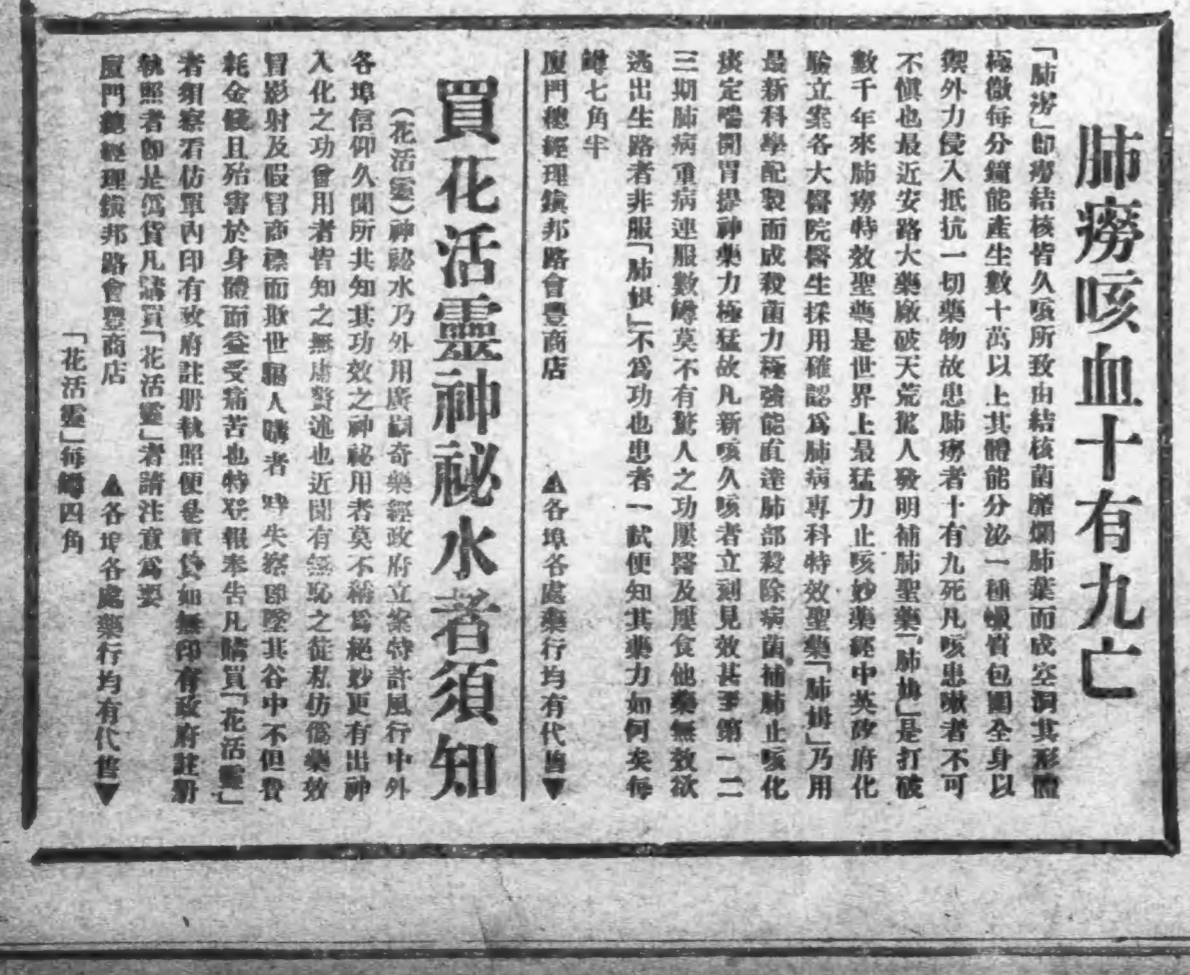 肺癆咳血十有九亡
「肺癆」卽癆結核皆久咳所致由結核菌靡爛肺葉而成空洞其形體
極微每分鐘能產生數十萬以上其體能分泌一種蠟質包圍全身以
禦外力侵入抵抗一切藥物故患肺癆者十有九死凡咳患嗽者不可
不愼也最近安路大藥廠破天荒驚人發明補肺聖藥「肺」是打破
數千年來肺癆特效聖藥是世界上最猛力止咳妙藥經中英政府化
驗立案各大醫院醫生採用確認爲肺病專科特效聖藥「肺」乃用
最新科學配製而成殺菌力極強能直達肺部殺除病菌補肺止咳化
痰定喘開胃提神藥力極猛故凡新咳久咳者立刻見效甚至第一二
三期肺病重病連服數罇莫不有驚人之功屢醫及屢食他藥無效欲
逃出生路者非服「肺」不爲功也患者一試便知其藥力如何矣每
罇七角半
廈門總經理鎭邦路會豐商店　▲各埠各處藥行均有代售▼
買花活靈神祕水者須知
（花活靈）神祕水乃外用奇藥經政府立案特許風行中外
各埠信仰久聞所共知其功效之神祕用者莫不稱爲絕妙更有出神
入化之功會用者皆知之無庸贅述也近聞有無恥之徒私仿僞藥效
冒影射及假冒商標而欺世騙人購者失察卽墜其谷中不但費
耗金錢且殆害於身體而益受痛苦也特登報奉告凡購買「花活靈」
者須察看仿單內印有政府註册執照便是眞貨如無印有政府註册
執照者卽是僞貨凡購買「花活靈」者請注意爲要
廈門總經理鎭邦路會豐商店　▲各埠各處藥行均有代售▼
「花活靈」每罇四角